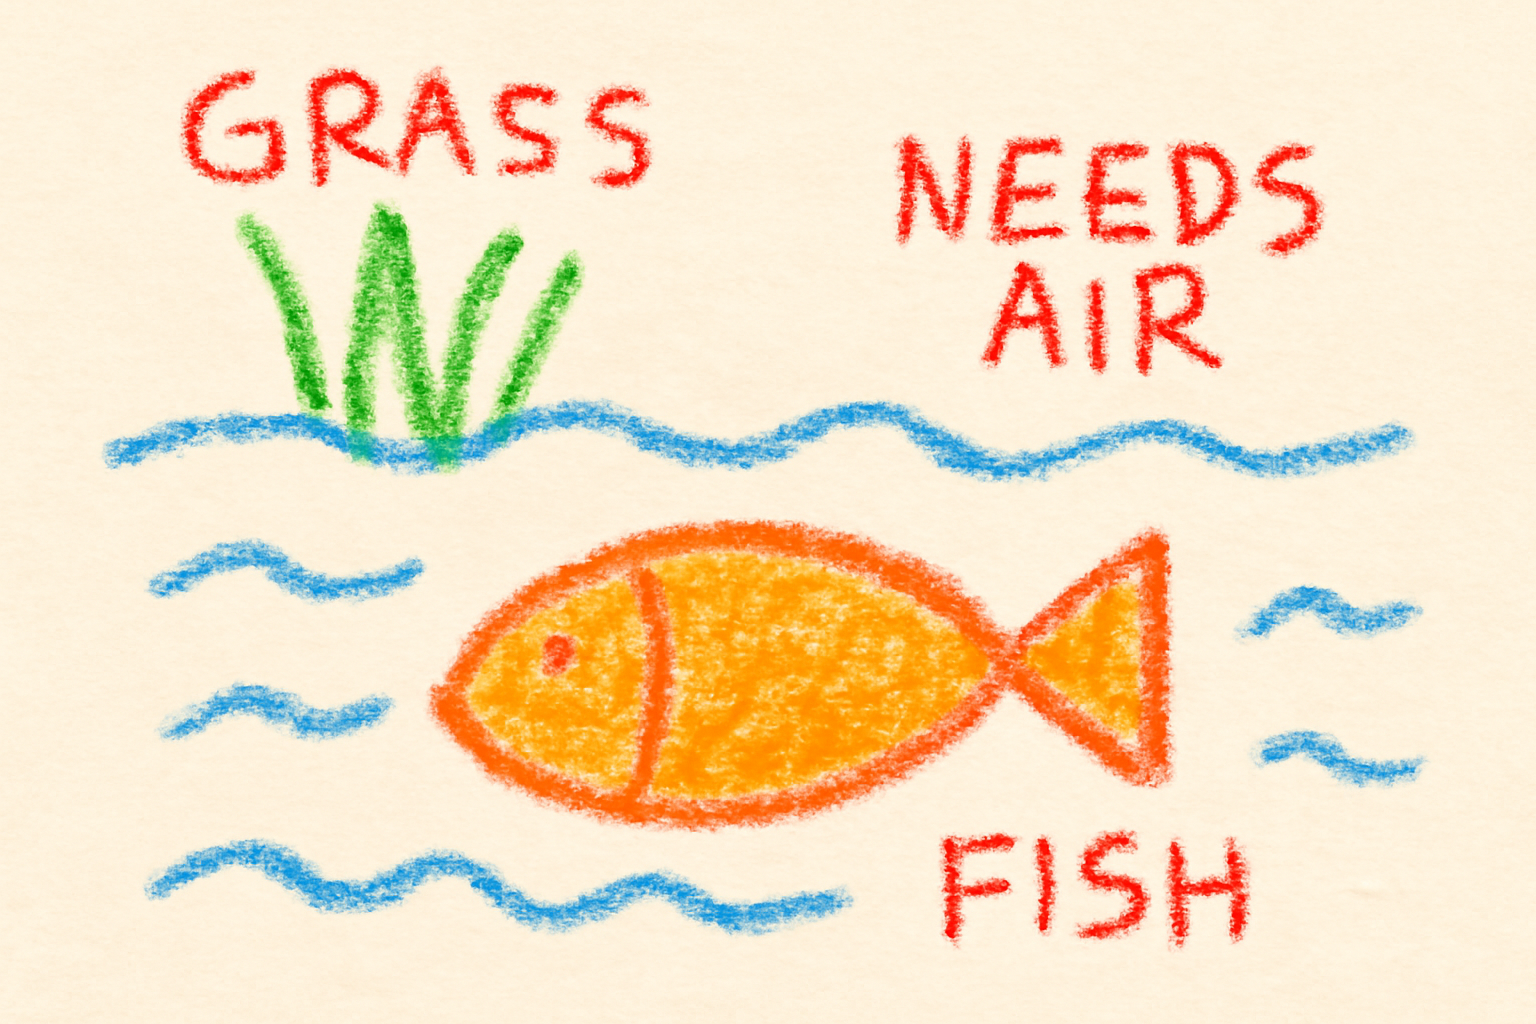 GRASS
NEEDS
AIR
FISH